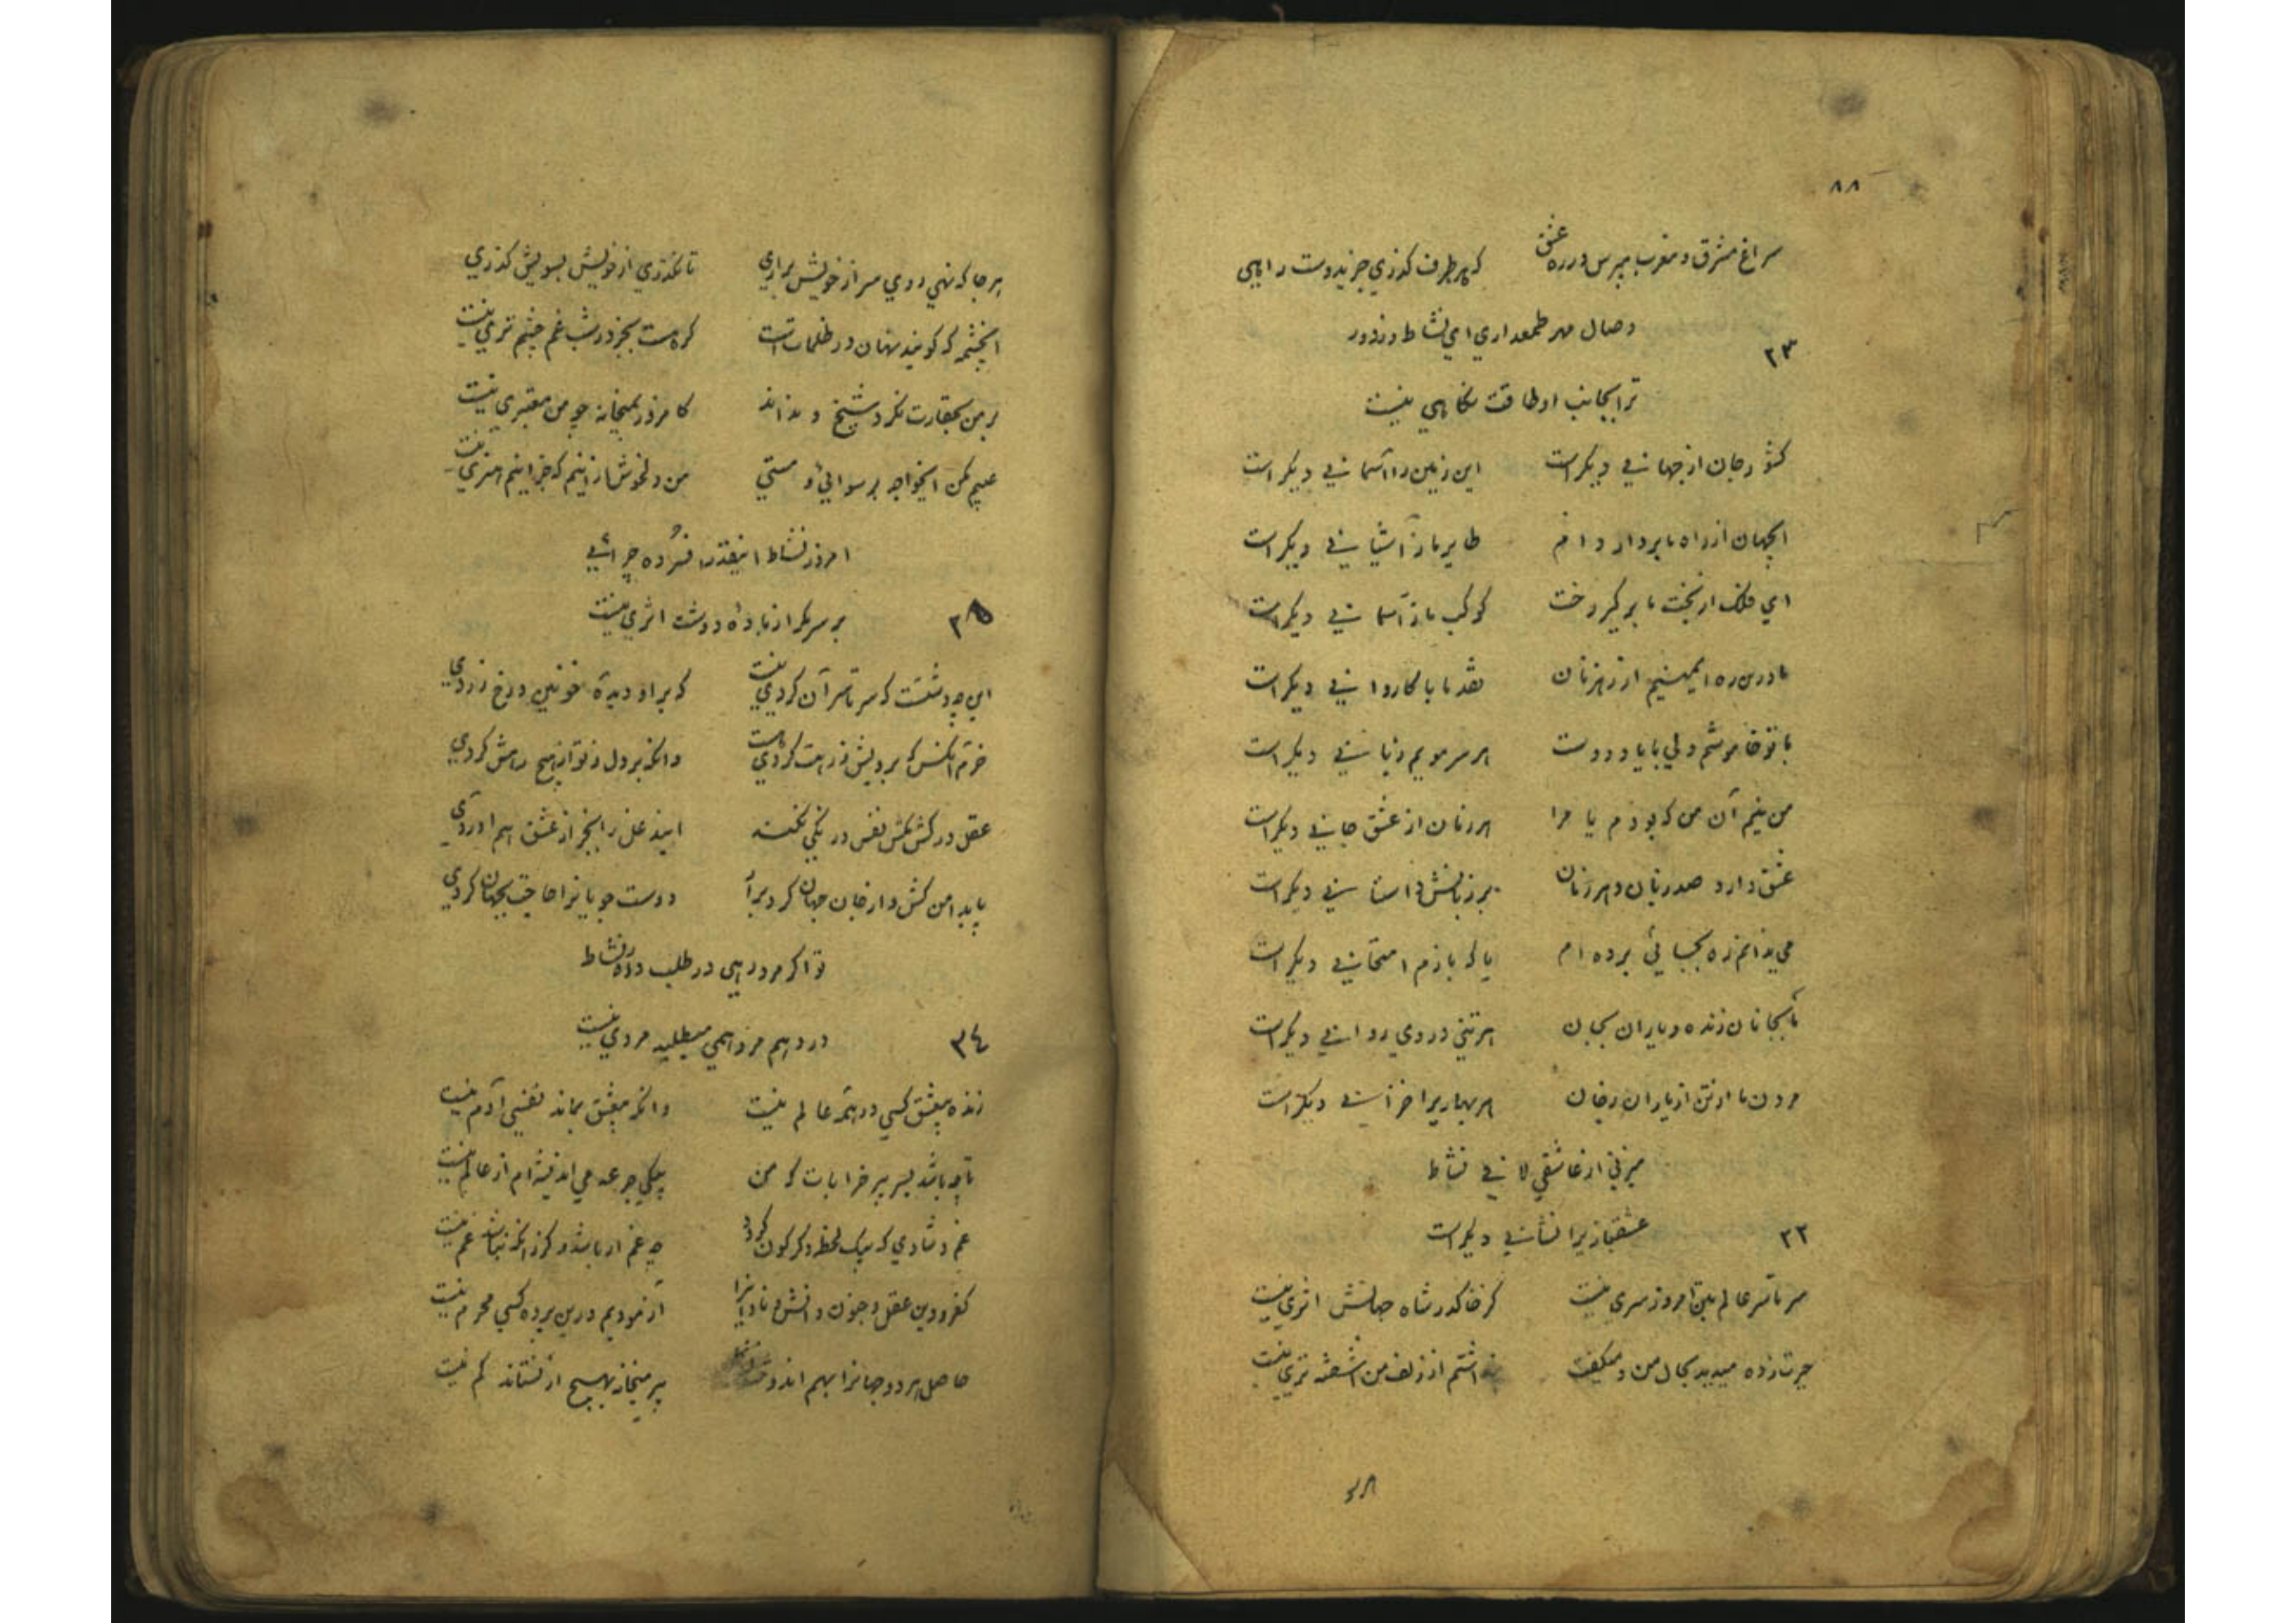 ۸۸
سراغ مشرق و مغرب مپرس در ره عشق که بهر طرف گذری جز بدوست راهی
وصال مهر طمعداری ای نشاط و زدور
۲۳
ترا بجانب او طاقت نگاهی نیست
کشور جان از جهانی دیگر است این زمین را آسمانی دیگر است
ایجهان از راه ما بردار دام طایر ما ز آشیانی دیگر است
ای فلک از بخت ما برگیر رخت کوکب ما ز آسمانی دیگر است
ما درین ره ایمنیم از رهزنان نقد ما با کاروانی دیگر است
با تو خاموشم ولی با یاد دوست هر سر مویم زبانی دیگر است
من نیم آن من که بودم یا مرا هر زمان از عشق جانی دیگر است
عشق دارد صد زبان و هر زمان بر زبانش داستانی دیگر است
می ندانم ره بجائی برده ام یا که بازم امتحانی دیگر است
ما بجانان زنده و یاران بجان هر تنی در وی روانی دیگر است
مردن ما از تن از یاران ز جان هر بهاریرا خزانی دیگر است
میزنی از عاشقی لافی نشاط
۲۲
عشقبازیرا نشانی دیگر است
سر تا سر عالم بین امروز سری نیست کز خاک در شاه جهانش اثری نیست
حیرت زده میدید بحال من و میگفت اشتم از زلف من آشفته تری نیست
هر جا که نهی روی سر از خویش براری تا نگذری از خویش بسویش گذری
آنچشمه که گویند نهان در ظلماتست گر هست بجز در شب غم چشم تری نیست
بر من بحقارت نگرد شیخ و نداند کامروز بمیخانه چو من معتبری نیست
عیبم مکن ایخواجه برسوائی و مستی من دلخوش ازینم که جز اینم هنری نیست
امروز نشاط اینقدر افسرده چرائی
بر سر مگر از باده دوشت اثری نیست
۲۵
این چه دشتست که سر تا سر آن گردی نیست که بر او دیده خونین و رخ زردی
خرم آنکس که برویش ز رهت گردی هست وانکه بر دل ز تو از هیچ رهش گردی
عقل در کشمکش نفس در نیکی نکند
پا بدامن کش و از جان جهان گرد برآ دوست جویانرا حاجت بجهان گردی
تو اگر مرد رهی در طلب درد نشاط
درد هم مرد همی میطلبد مردی نیست
۳٤
زنده بعشق کسی در همه عالم نیست وانکه بعشق بماند نفسی آدم نیست
تا چه باشد بسر پیر خرابات که من بیکی جرعه می اندیشه ام از عالم نیست
غم و شادی که بیک لحظه دگرگون گردد چه غم ار باشد و گر زانکه نباشد غم نیست
کفر و دین عقل و جنون دانش و نادانیرا آزمودیم درین پرده کسی محرم نیست
حاصل هر دو جهانرا بهم پیر میخانه بهیچ ار نستاند کم نیست